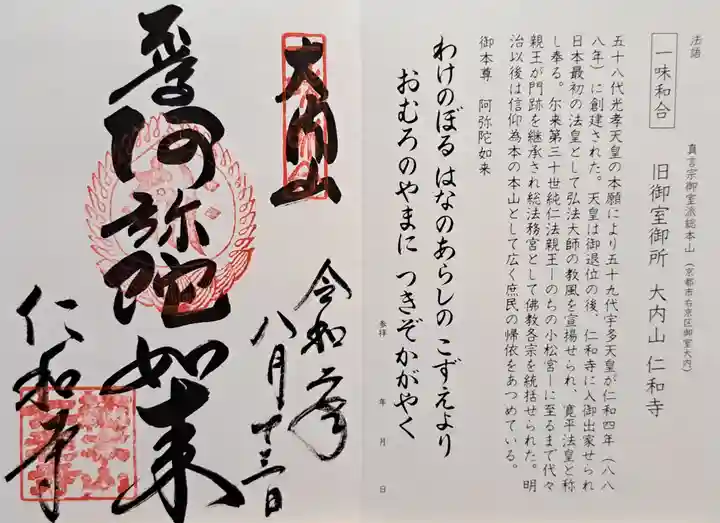 法語
一味和合
真言宗御室派総本山（京都市右京区御室大内）
旧御室御所　大内山　仁和寺
五十八代光孝天皇の本願により五十九代宇多天皇が仁和四年（八八
八年）に創建された。天皇は御退位の後、仁和寺に入御出家せられ
日本最初の法皇として弘法大師の教風を宣揚せられ、寛平法皇と称
し奉る。尓来第三十世純仁法親王―のちの小松宮―に至るまで代々
親王が門跡を継承され総法務宮として佛教各宗を統括せられた。明
治以後は信仰為本の本山として広く庶民の帰依をあつめている。
御本尊　阿弥陀如来
わけのぼる はなのあらしの こずえより
おむろのやまに つきぞかがやく
参拝　年　月　日
大内山
令和
八月十三日
阿弥陀如来
仁和寺